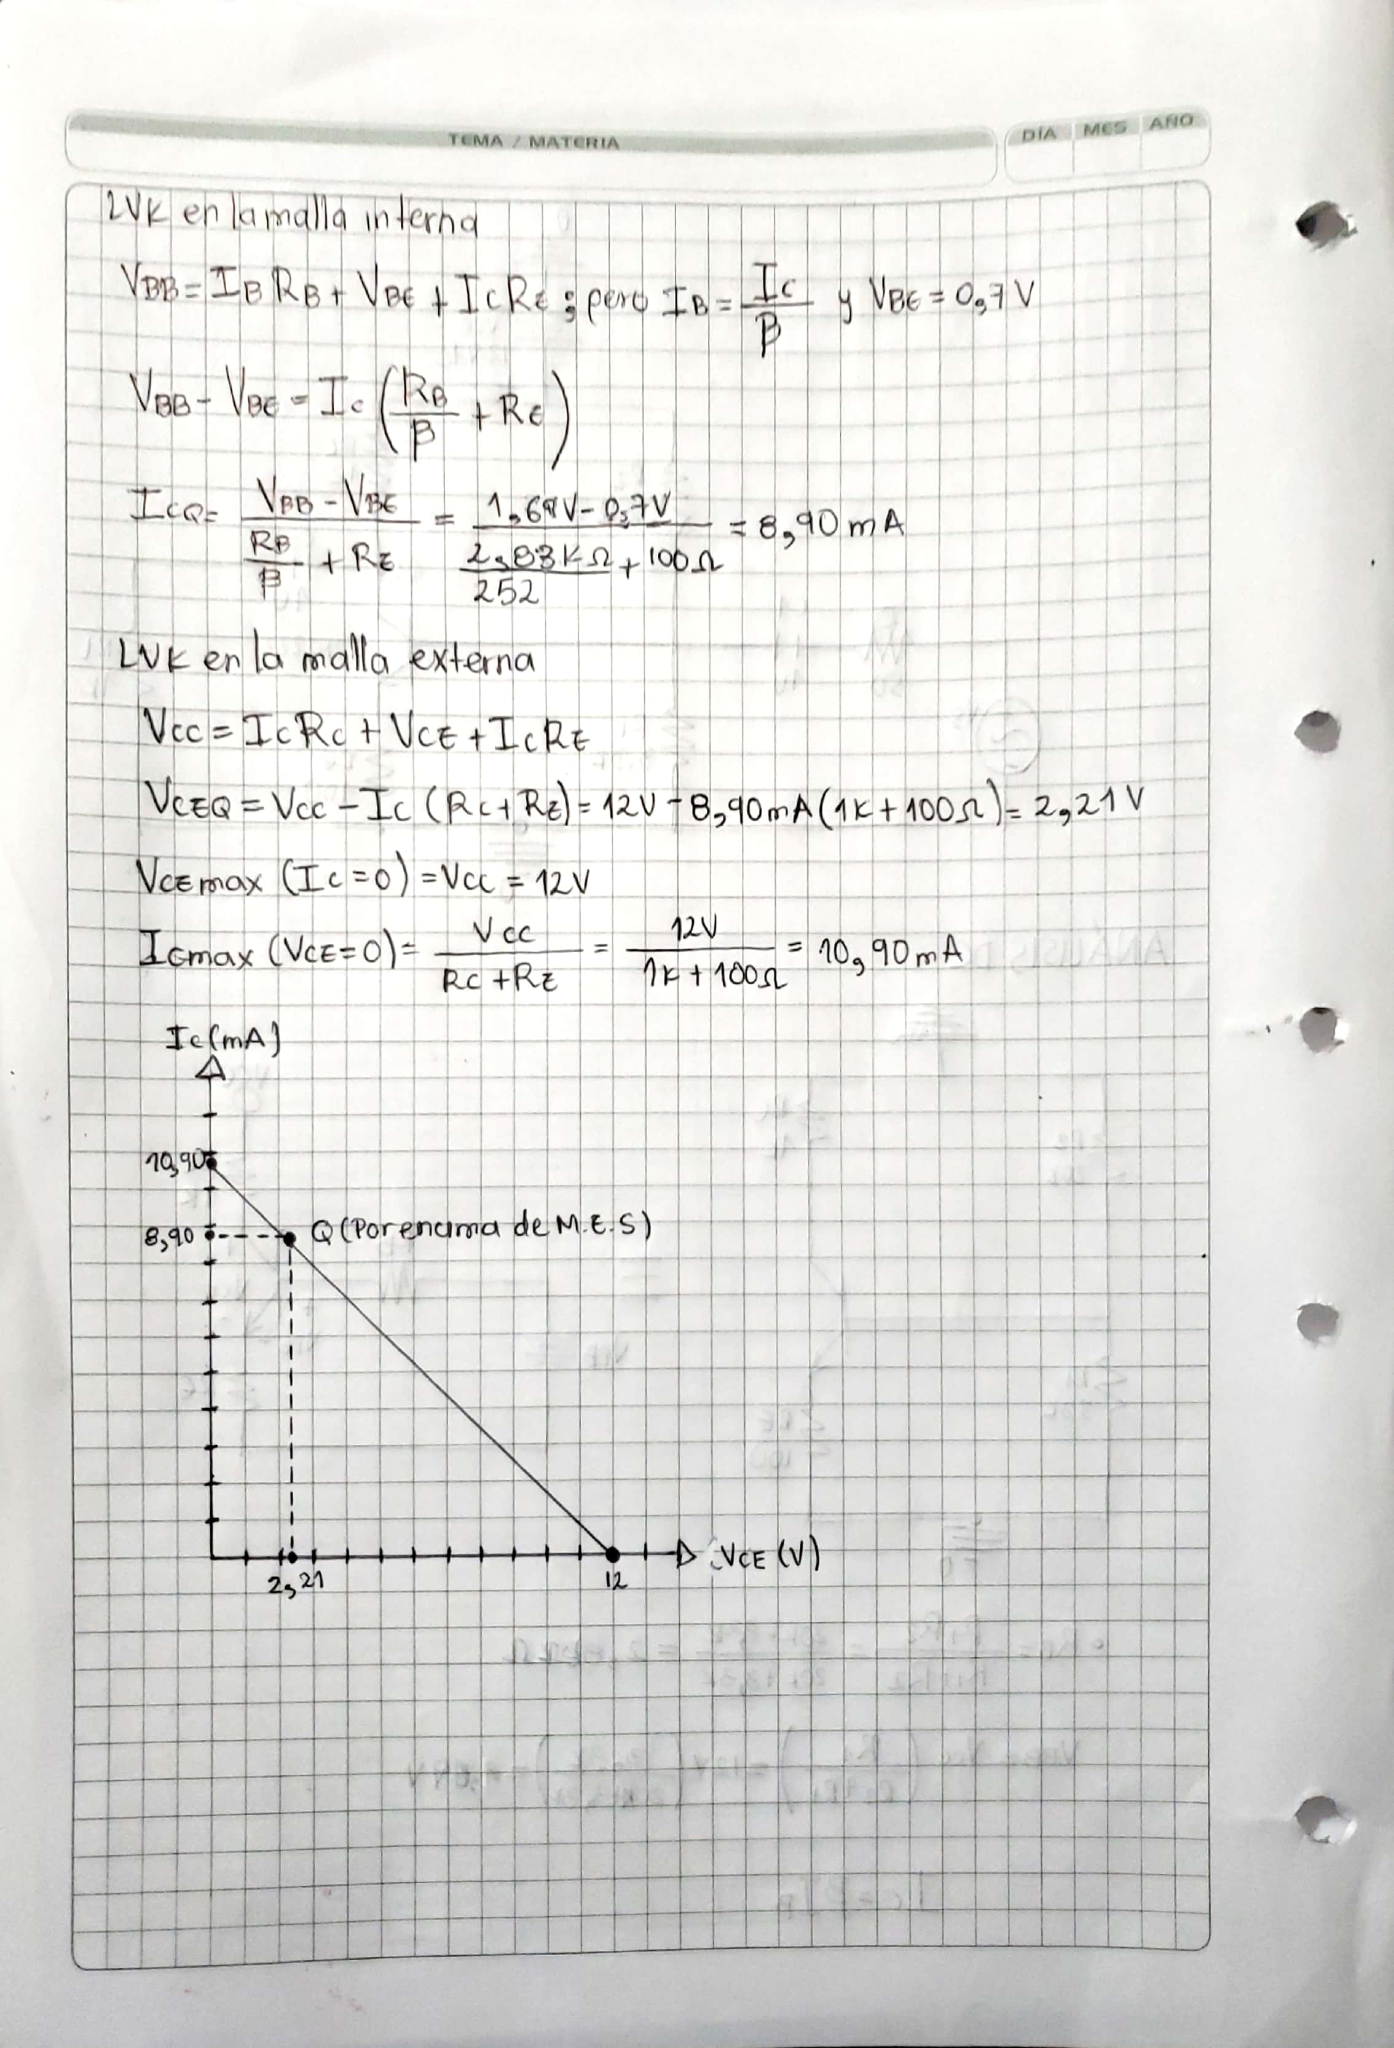 TEMA / MATERIA
DÍA MES AÑO
LVK en la malla interna
VBB = IB RB + VBE + IC RE ; pero IB = IC / β y VBE = 0,7 V
VBB - VBE = IC (RB / β + RE)
ICQ = (VBB - VBE) / (RB / β + RE) = (1,68V - 0,7V) / (2,83KΩ / 252 + 100Ω) = 8,90 mA
LVK en la malla externa
VCC = IC RC + VCE + IC RE
VCEQ = VCC - IC (RC + RE) = 12V - 8,90mA (1K + 100Ω) = 2,21 V
VCE max (IC = 0) = VCC = 12V
ICmax (VCE = 0) = VCC / (RC + RE) = 12V / (1K + 100Ω) = 10,90 mA
IC (mA)
10,90
8,90 Q (Por encima de M.E.S)
VCE (V)
2,21 12